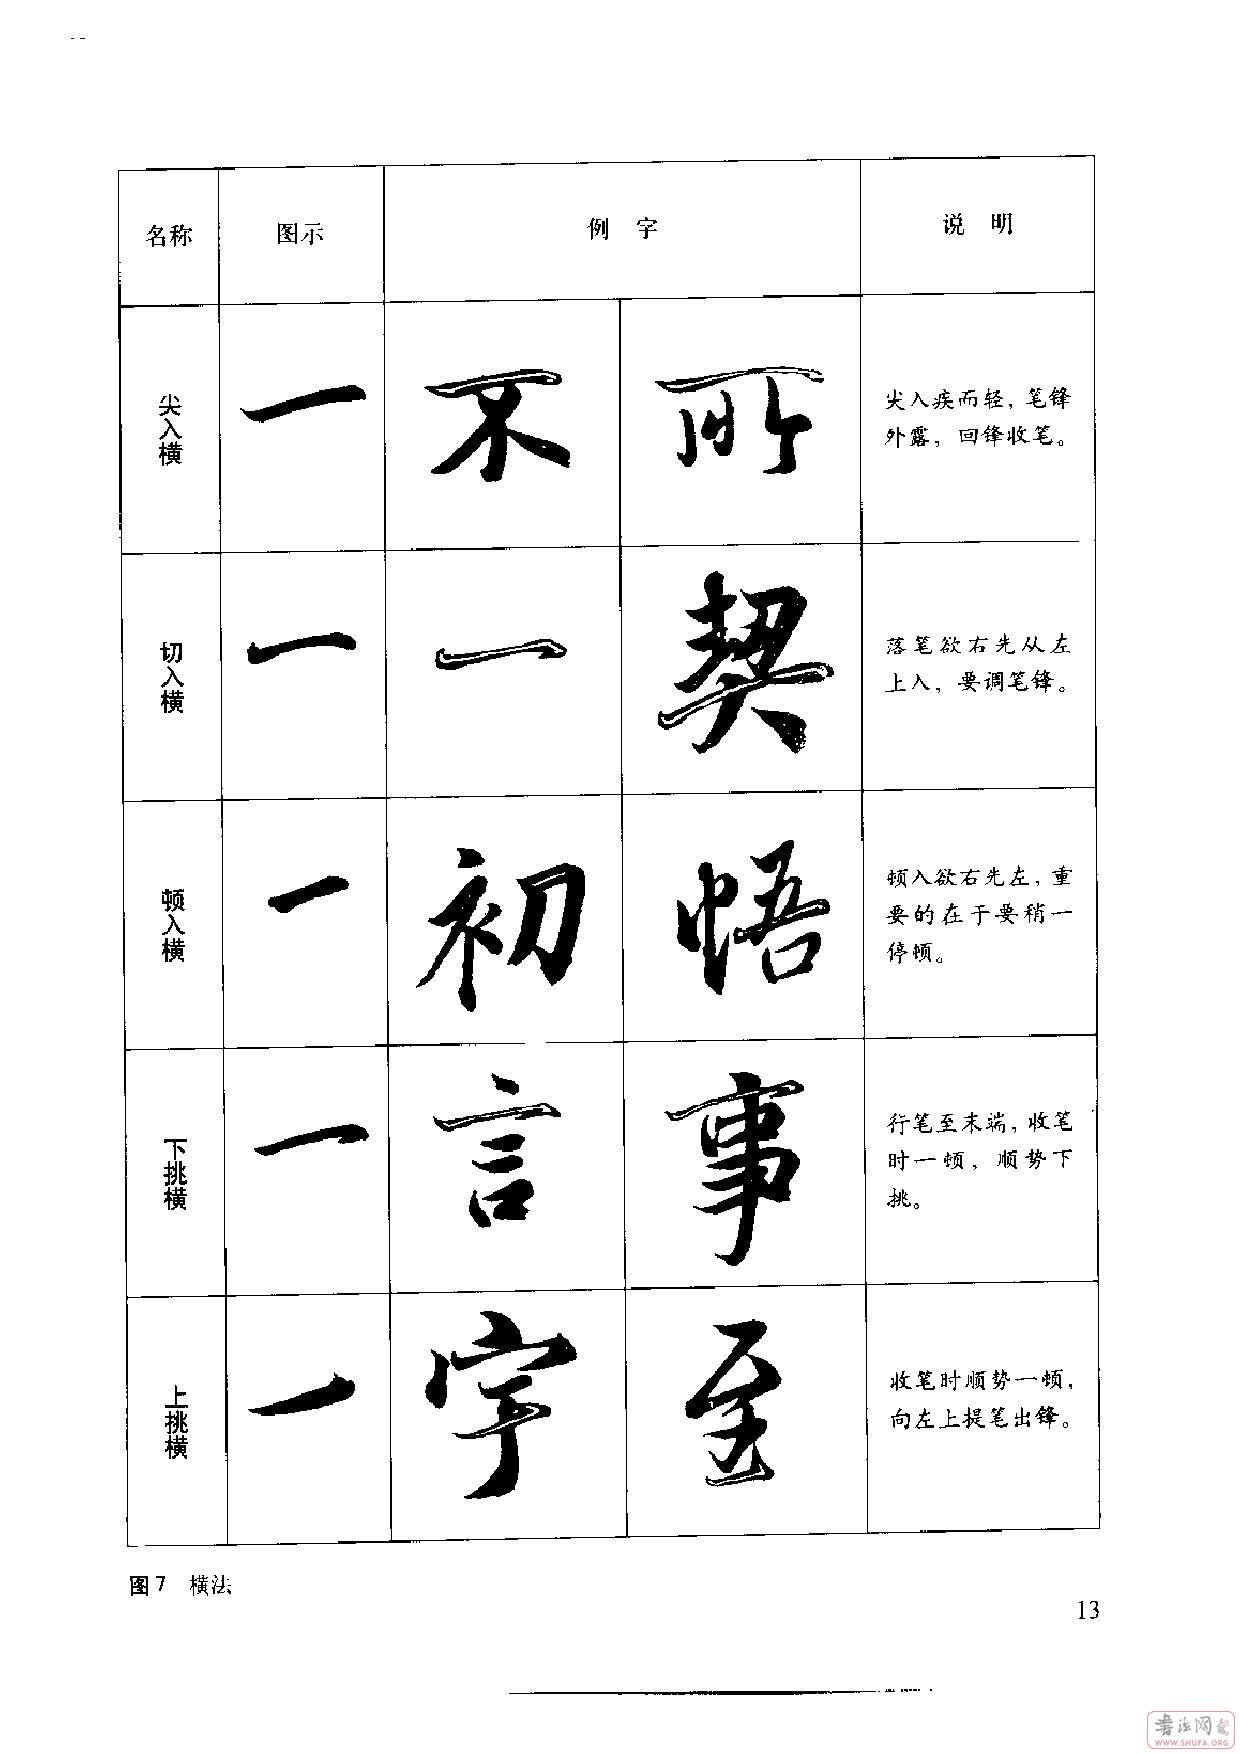 名称 图示 例 字 说 明
尖入横 一 不 所 尖入疾而轻，笔锋
外露，回锋收笔。
切入横 一 一 契 落笔欲右先从左
上入，要调笔锋。
顿入横 一 初 悟 顿入欲右先左，重
要的在于要稍一
停顿。
下挑横 一 言 事 行笔至末端，收笔
时一顿，顺势下
挑。
上挑横 一 字 至 收笔时顺势一顿，
向左上提笔出锋。
图7 横法
13
书法网
WWW.SHUFA.ORG